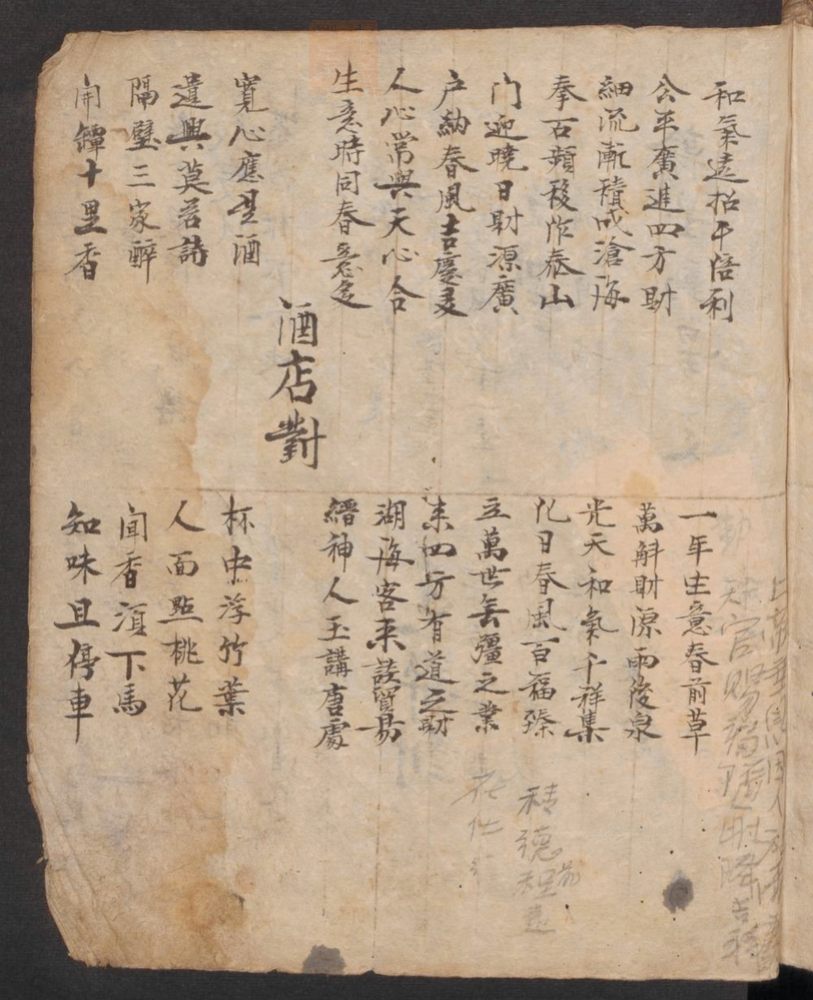 和氣遠招千倍利
公平廣進四方財
細流漸積成滄海
拳石頻移作泰山
门迎曉日財源廣
户納春風吉慶多
人心常與天心合
生意時同春意多
酒店對
寬心應是酒
遣興莫若詩
隔壁三家醉
開罈十里香
一年生意春前草
萬斛財源雨後泉
光天和氣千祥集
化日春風百福臻
立萬世無彊之業
來四方有道之財
湖海客來談貿易
縉神人至講唐虞
杯中浮竹葉
人面點桃花
聞香須下馬
知味且停車
財官賜福
精德